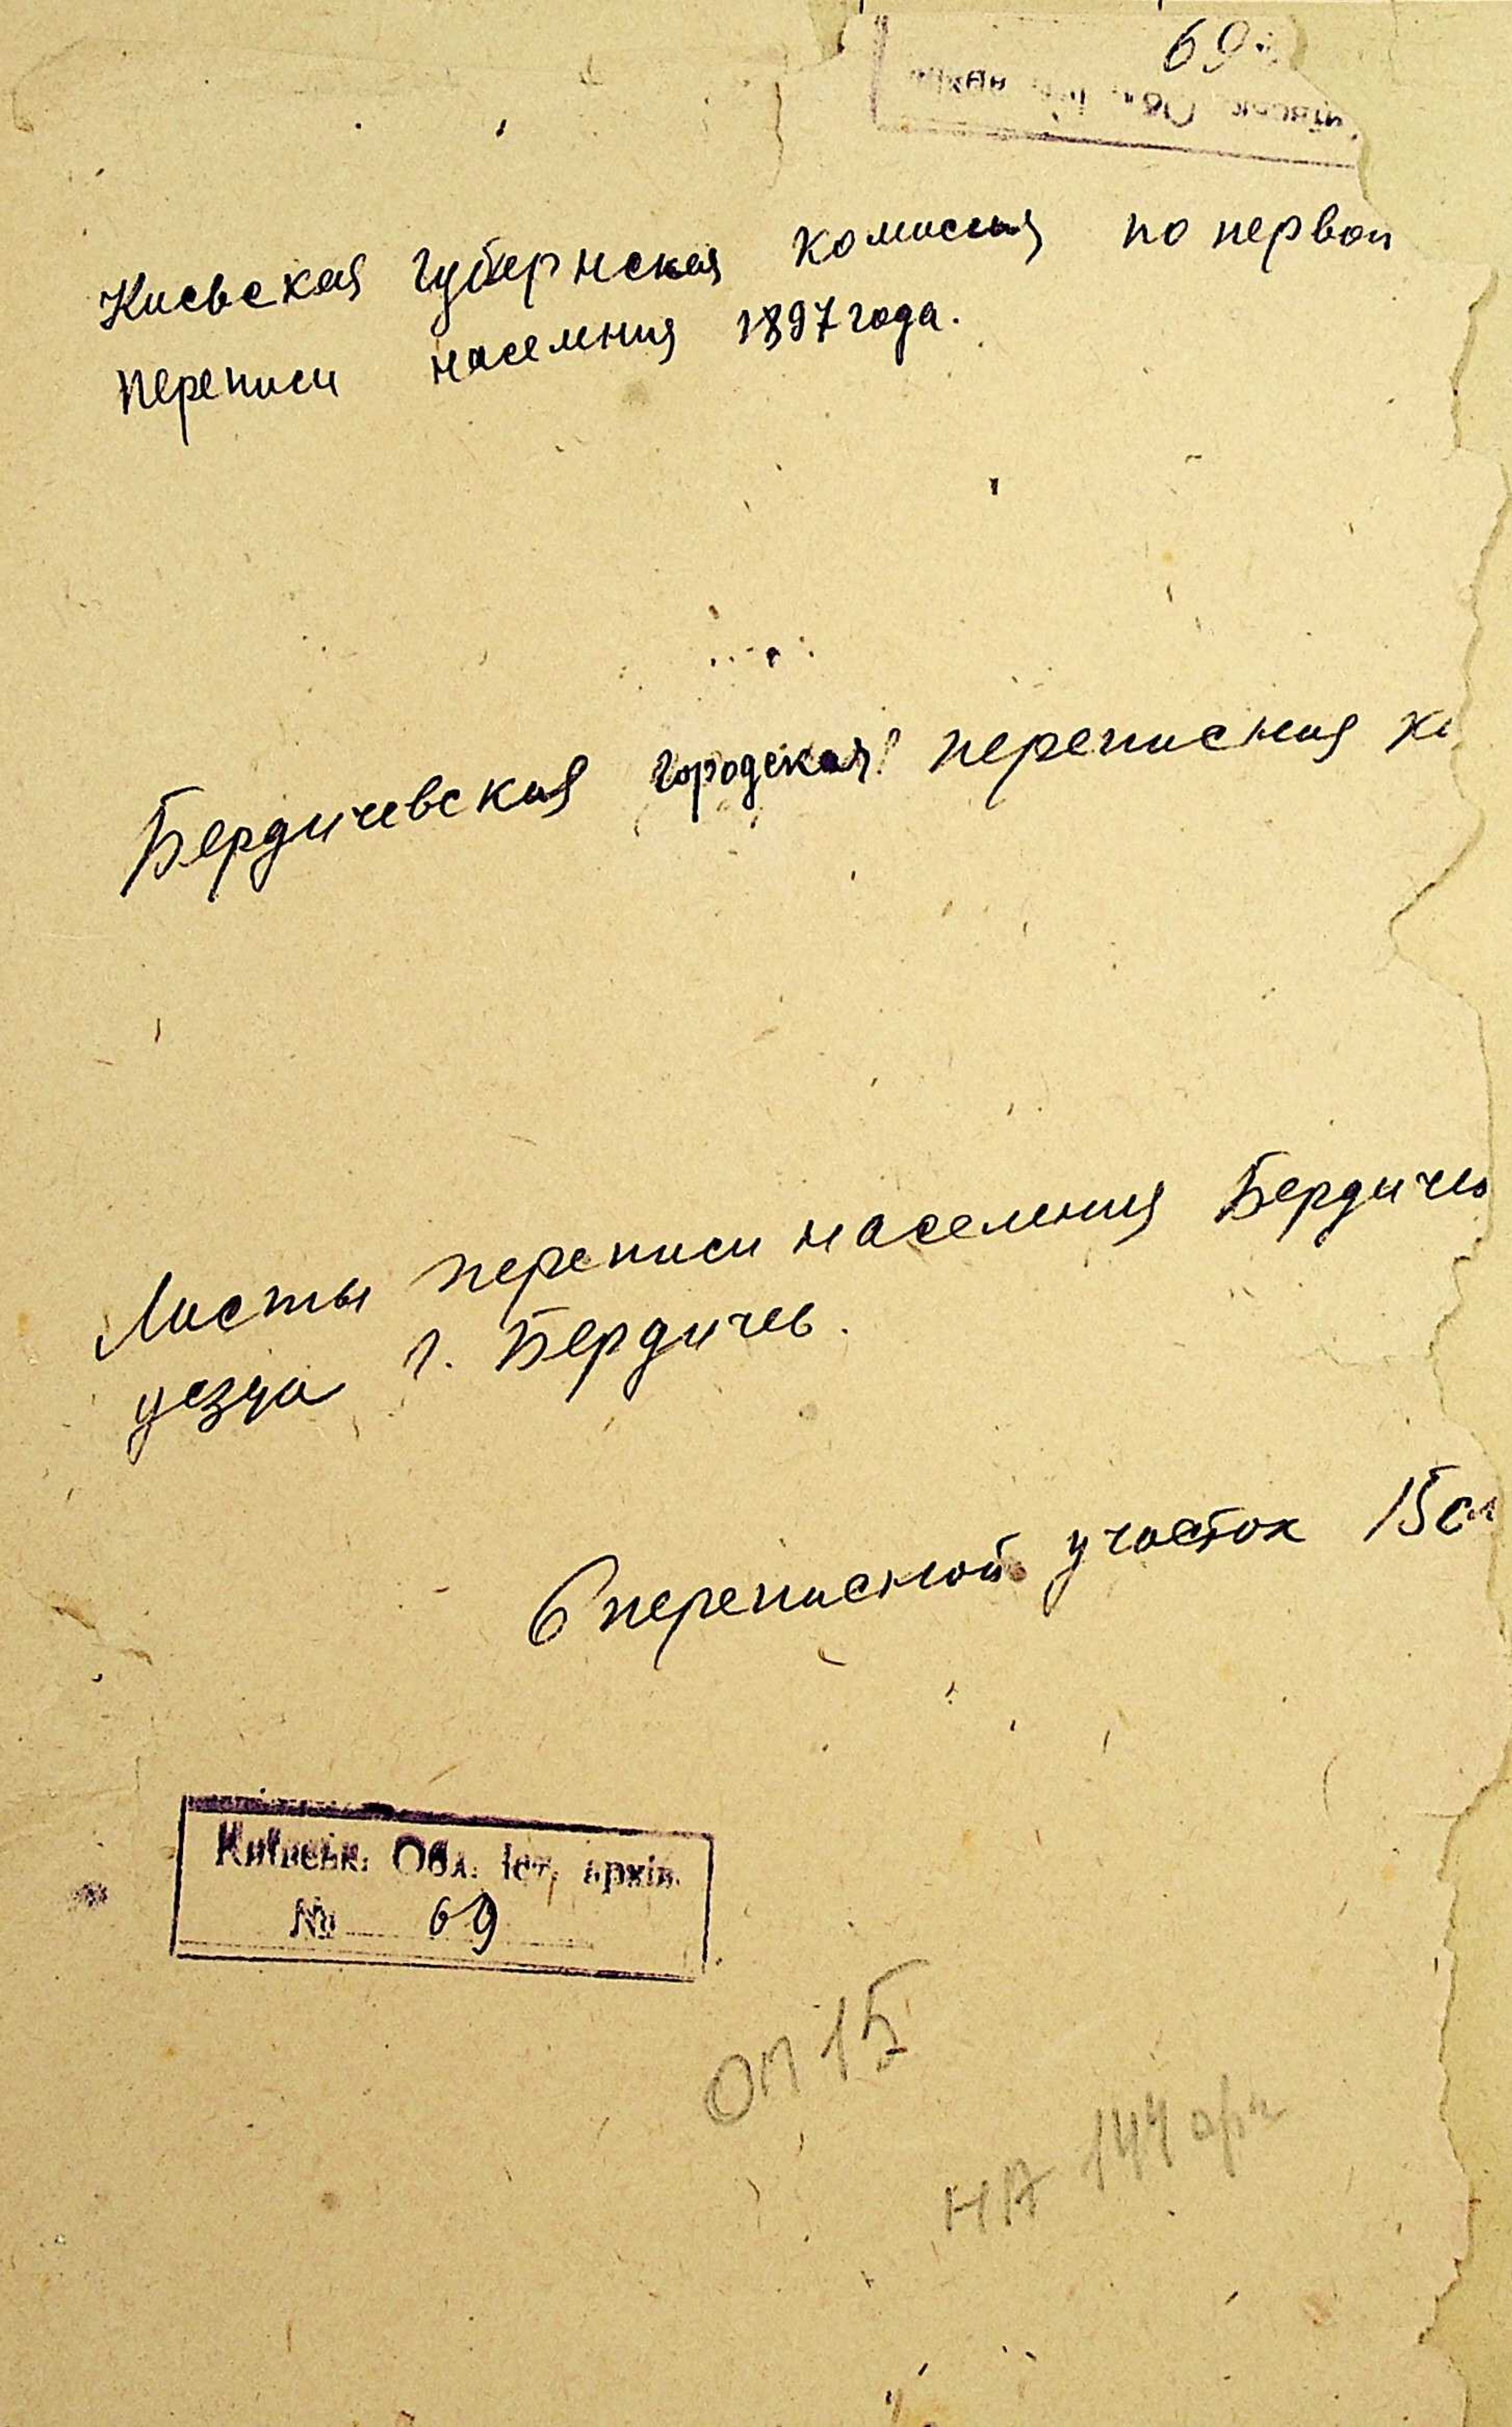 69
Киевская губернская комиссия по первой
переписи населения 1897 года.
Бердичевская городская переписная к
Листы переписи населения Бердичев
уезда г. Бердичев.
6 переписной участок 15
Київськ. Обл. Іст. архів.
№ 69
ОП 15
НА 144 арк